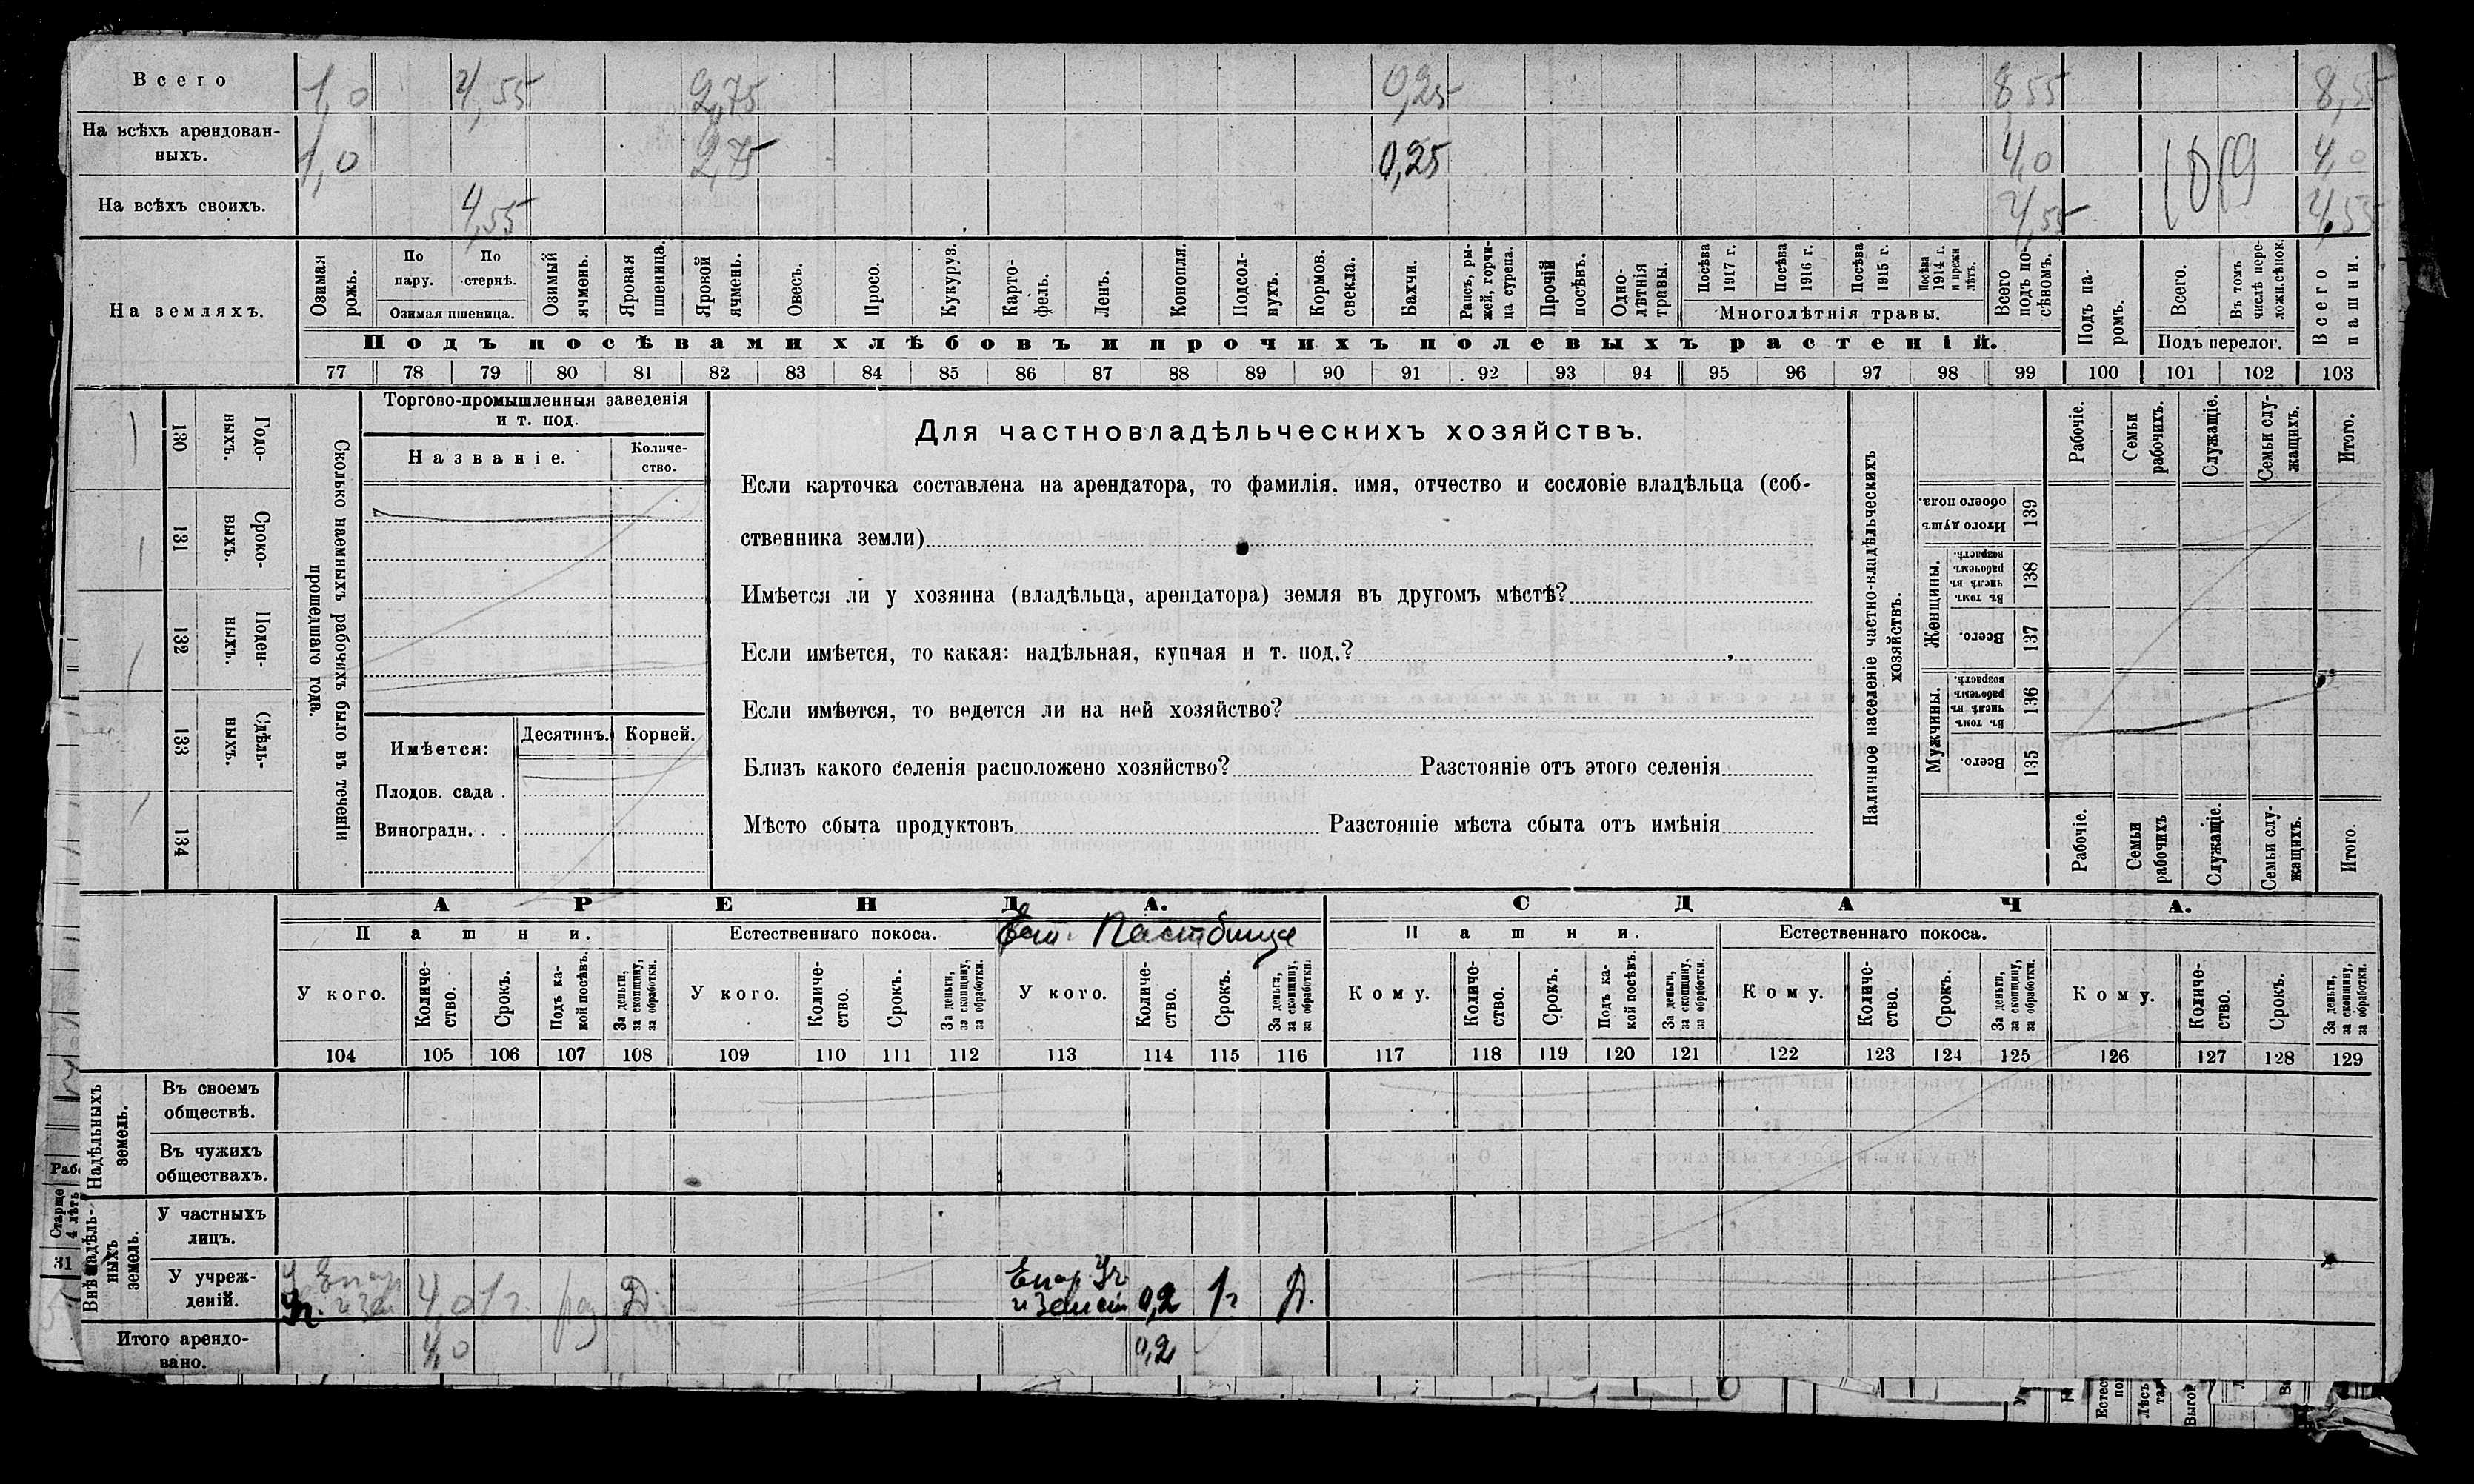 Всего 1,0 4,55 2,75 0,25 8,55 8,55
На всѣхъ арендован-
ныхъ. 1,0 2,75 0,25 4,0 4,0
На всѣхъ своихъ. 4,55 4,55 4,55
На земляхъ.
Озимая рожь.
По пару.
По стернѣ.
Озимая пшеница.
Озимый ячмень.
Яровая пшеница.
Яровой ячмень.
Овесъ.
Просо.
Кукуруз.
Карто-
фель.
Ленъ.
Конопля.
Подсол-
нухъ.
Кормов. свекла.
Бахчи.
Рапсъ, ры-
жей, горчи-
ца сурепа.
Прочій посѣвъ.
Одно-
лѣтнія травы.
Посѣва 1917 г.
Посѣва 1916 г.
Посѣва 1915 г.
Посѣва 1914 г. и прежн лѣтъ.
Многолѣтнія травы.
Всего подъ по-
сѣвомъ.
Подъ па-
ромъ.
Всего.
Въ томъ числѣ пере-
ложн.сѣнок.
Подъ перелог.
Всего пашни.
Подъ посѣвами хлѣбовъ и прочихъ полевыхъ растеній.
77 78 79 80 81 82 83 84 85 86 87 88 89 90 91 92 93 94 95 96 97 98 99 100 101 102 103
130 Годо-
выхъ.
131 Сроко-
выхъ.
132 Поден-
ныхъ.
133 Сдѣль-
ныхъ.
134
Сколько наемныхъ рабочихъ было въ теченіи
прошедшаго года.
Торгово-промышленныя заведенія
и т. под.
Названіе.
Количе-
ство.
Имѣется: Десятинъ. Корней.
Плодов. сада .
Виноградн. . .
Для частновладѣльческихъ хозяйствъ.
Если карточка составлена на арендатора, то фамилія, имя, отчество и сословіе владѣльца (соб-
ственника земли)
Имѣется ли у хозяина (владѣльца, арендатора) земля въ другомъ мѣстѣ?
Если имѣется, то какая: надѣльная, купчая и т. под.?
Если имѣется, то ведется ли на ней хозяйство?
Близъ какого селенія расположено хозяйство? Разстояніе отъ этого селенія
Мѣсто сбыта продуктовъ Разстояніе мѣста сбыта отъ имѣнія
Наличное населеніе частно-владѣльческихъ
хозяйствъ.
Рабочіе.
Семьи рабочихъ.
Служащіе.
Семьи слу-
жащихъ.
Итого.
Итого душъ обоего пола. 139
Женщины.
Въ томъ числѣ въ рабочемъ возрастѣ. 138
Всего. 137
Мужчины.
Въ томъ числѣ въ рабочемъ возрастѣ. 136
Всего. 135
Рабочіе.
Семьи рабочихъ
Служащіе.
Семьи слу-
жащихъ.
Итого.
АРЕНДА. СДАЧА.
Пашни. Естественнаго покоса. Ест. Пастбище Пашни. Естественнаго покоса.
У кого.
Количе-
ство.
Срокъ.
Подъ ка-
кой посѣвъ.
За деньги,
за скопщину,
за обработки.
У кого.
Количе-
ство.
Срокъ.
За деньги,
за скопщину,
за обработки.
У кого.
Количе-
ство.
Срокъ.
За деньги,
за скопщину,
за обработки.
Кому.
Количе-
ство.
Срокъ.
Подъ ка-
кой посѣвъ.
За деньги,
за скопщину,
за обработки.
Кому.
Количе-
ство.
Срокъ.
За деньги,
за скопщину,
за обработки.
Кому.
Количе-
ство.
Срокъ.
За деньги,
за скопщину,
за обработки.
104 105 106 107 108 109 110 111 112 113 114 115 116 117 118 119 120 121 122 123 124 125 126 127 128 129
Надѣльныхъ
земель.
Въ своемъ
обществѣ.
Въ чужихъ
обществахъ.
Внѣ надѣль-
ныхъ
земель.
У частныхъ
лицъ.
У учреж-
деній. 4,0 1г. Д. 0,2 1г Д.
Итого арендо-
вано. 4,0 0,2
Раб
Старше
4 лѣтъ
31